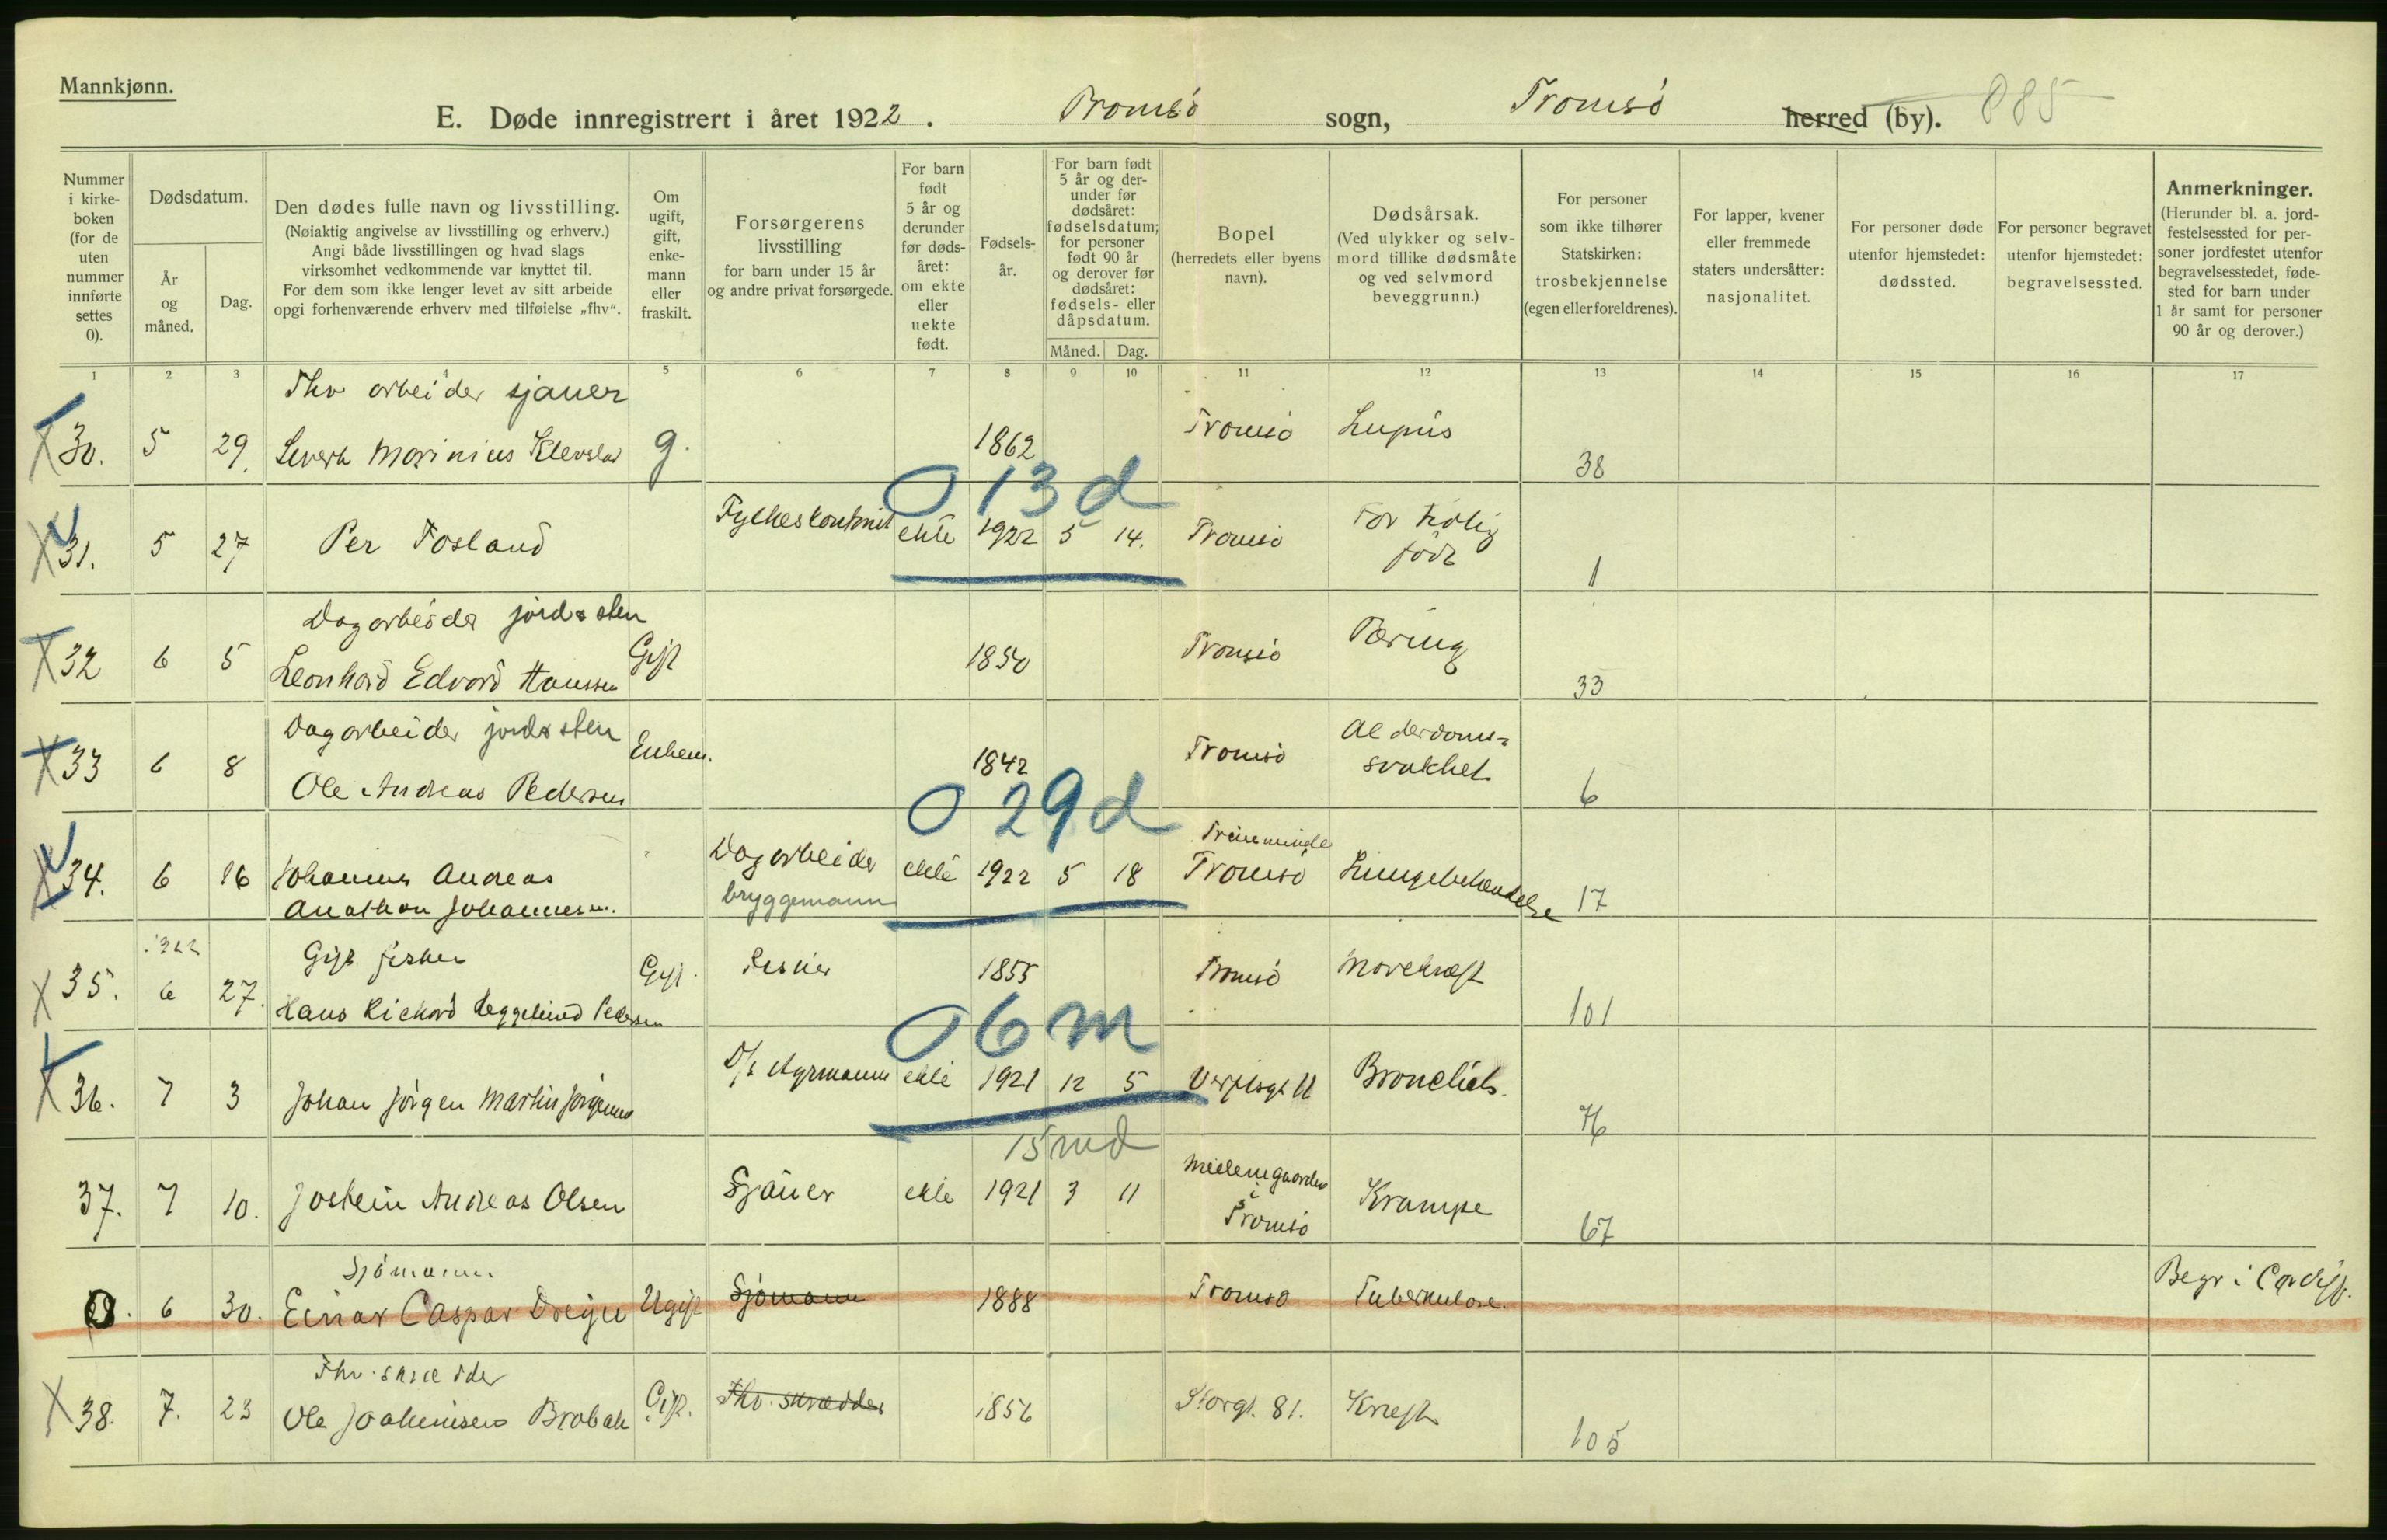 Mannkjønn.
E. Døde innregistrert i året 1922. Tromsø sogn, Tromsø herred (by). 885
Nummer i kirke-boken (for de uten nummer innførte settes 0).
Dødsdatum.
År og måned.
Dag.
Den dødes fulle navn og livsstilling.
(Nøiaktig angivelse av livsstilling og erhverv.)
Angi både livsstillingen og hvad slags
virksomhet vedkommende var knyttet til.
For dem som ikke lenger levet av sitt arbeide
opgi forhenværende erhverv med tilføielse „fhv“.
Om ugift, gift, enke-mann eller fraskilt.
Forsørgerens livsstilling
for barn under 15 år
og andre privat forsørgede.
For barn født 5 år og derunder før døds-året: om ekte eller uekte født.
Fødsels-år.
For barn født 5 år og der-under før dødsåret: fødselsdatum; for personer født 90 år og derover før dødsåret: fødsels- eller dåpsdatum.
Måned. Dag.
Bopel
(herredets eller byens navn).
Dødsårsak.
(Ved ulykker og selv-mord tillike dødsmåte og ved selvmord beveggrunn.)
For personer som ikke tilhører Statskirken: trosbekjennelse (egen eller foreldrenes).
For lapper, kvener eller fremmede staters undersåtter: nasjonalitet.
For personer døde utenfor hjemstedet: dødssted.
For personer begravet utenfor hjemstedet: begravelsessted.
Anmerkninger.
(Herunder bl. a. jord-festelsessted for per-soner jordfestet utenfor begravelsesstedet, føde-sted for barn under 1 år samt for personer 90 år og derover.)
1 2 3 4 5 6 7 8 9 10 11 12 13 14 15 16 17
Fhv arbeider sjauer
30. 5 29. Marinius g. 1862 Tromsø Lupus 38
0 13 d
31. 5 27 Per Fosland ekte 1922 5 14. Tromsø For tidlig født 1
Dagarbeider jord & sten
32 6 5 Leonhard Edvard Hanssen Gift 1850 Tromsø Tæring 33
Dagarbeider jord & sten
33 6 8 Ole Andreas Pedersen Enkem. 1842 Tromsø Alderdoms-svakhet 6
0 29 d
34. 6 16 Johannes Andreas Johannessen. Dagarbeider bryggemann ekte 1922 5 18 Tromsø 17
1922
Gift fisker
35. 6 27. Hans Richard Pedersen Gift. Fisker 1855 Tromsø Mavekræft 101
0 6 m
36. 7 3 Johan Jörgen Martin Jörgensen D/s styrmann ekte 1921 12 5 76
15 md
37. 7 10. Jostein Andreas Olsen Sjauer ekte 1921 3 11 Tromsø Krampe 67
Sjömann
0. 6 30. Einar Caspar Ugift Sjömann 1888 Tromsø Tuberkulose. Begr i
Fhv. skredder
38. 7. 23 Ole Gift. Fhv. skrædder 1856 Storgt. 81. Kræft 105